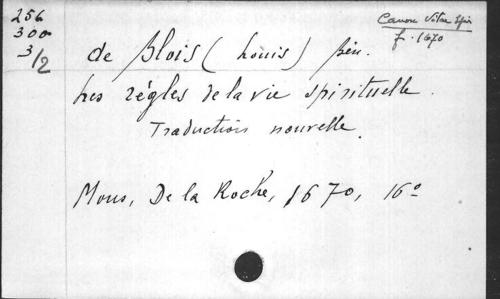 256
300
3/2
f. 1670
de Blois (Louis) Bén.
Les règles de la vie spirituelle.
Traduction nouvelle.
Mons, De la Roche, 1670, 16°